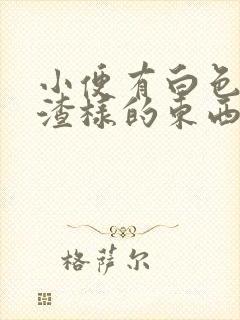 小便有白色
渣样的东西
格萨尔